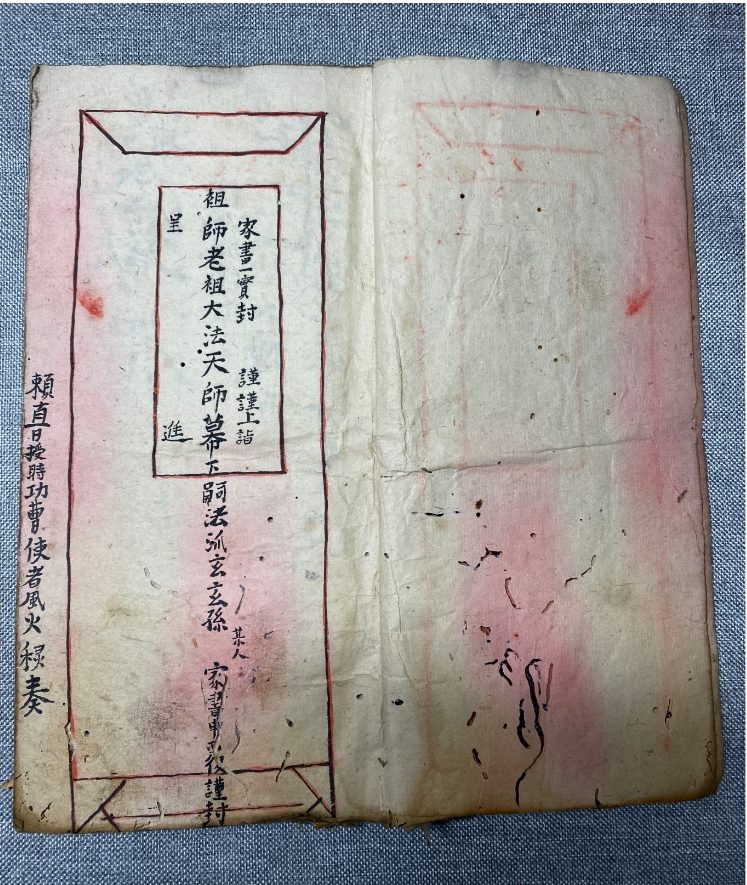 家書一寶封 謹謹上詣
祖師老祖大法天師幕下嗣法派玄玄孫 某人 家書 謹封
呈 進
賴直日授時功曹使者風火 奏